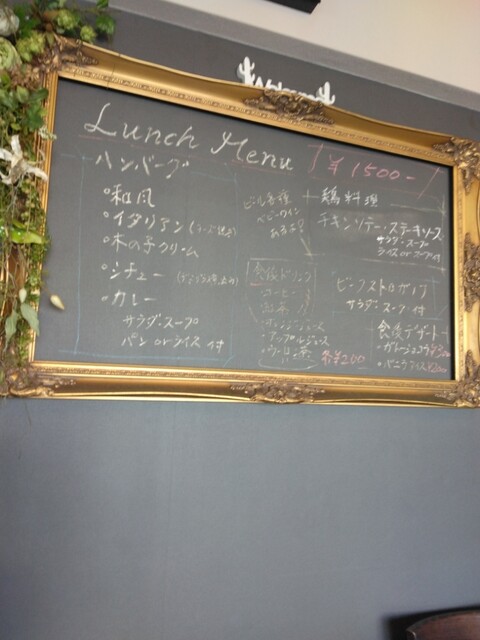 Welcome
Lunch Menu ¥1500-
ハンバーグ
・和風
・イタリアン
・木の子クリーム
・シチュー
・カレー
サラダ・スープ
パン orライス 付
ビール各種
ベビーワイン
あります
食後ドリンク
・コーヒー
・紅茶
・オレンジジュース
・アップルジュース
・ウーロン茶 各¥200
鶏料理
チキンソテー・ステーキソース
サラダ・スープ
ライスorパン付
サラダ・スープ付
食後デザート
・ガトーショコラ
・バニラアイス ¥200